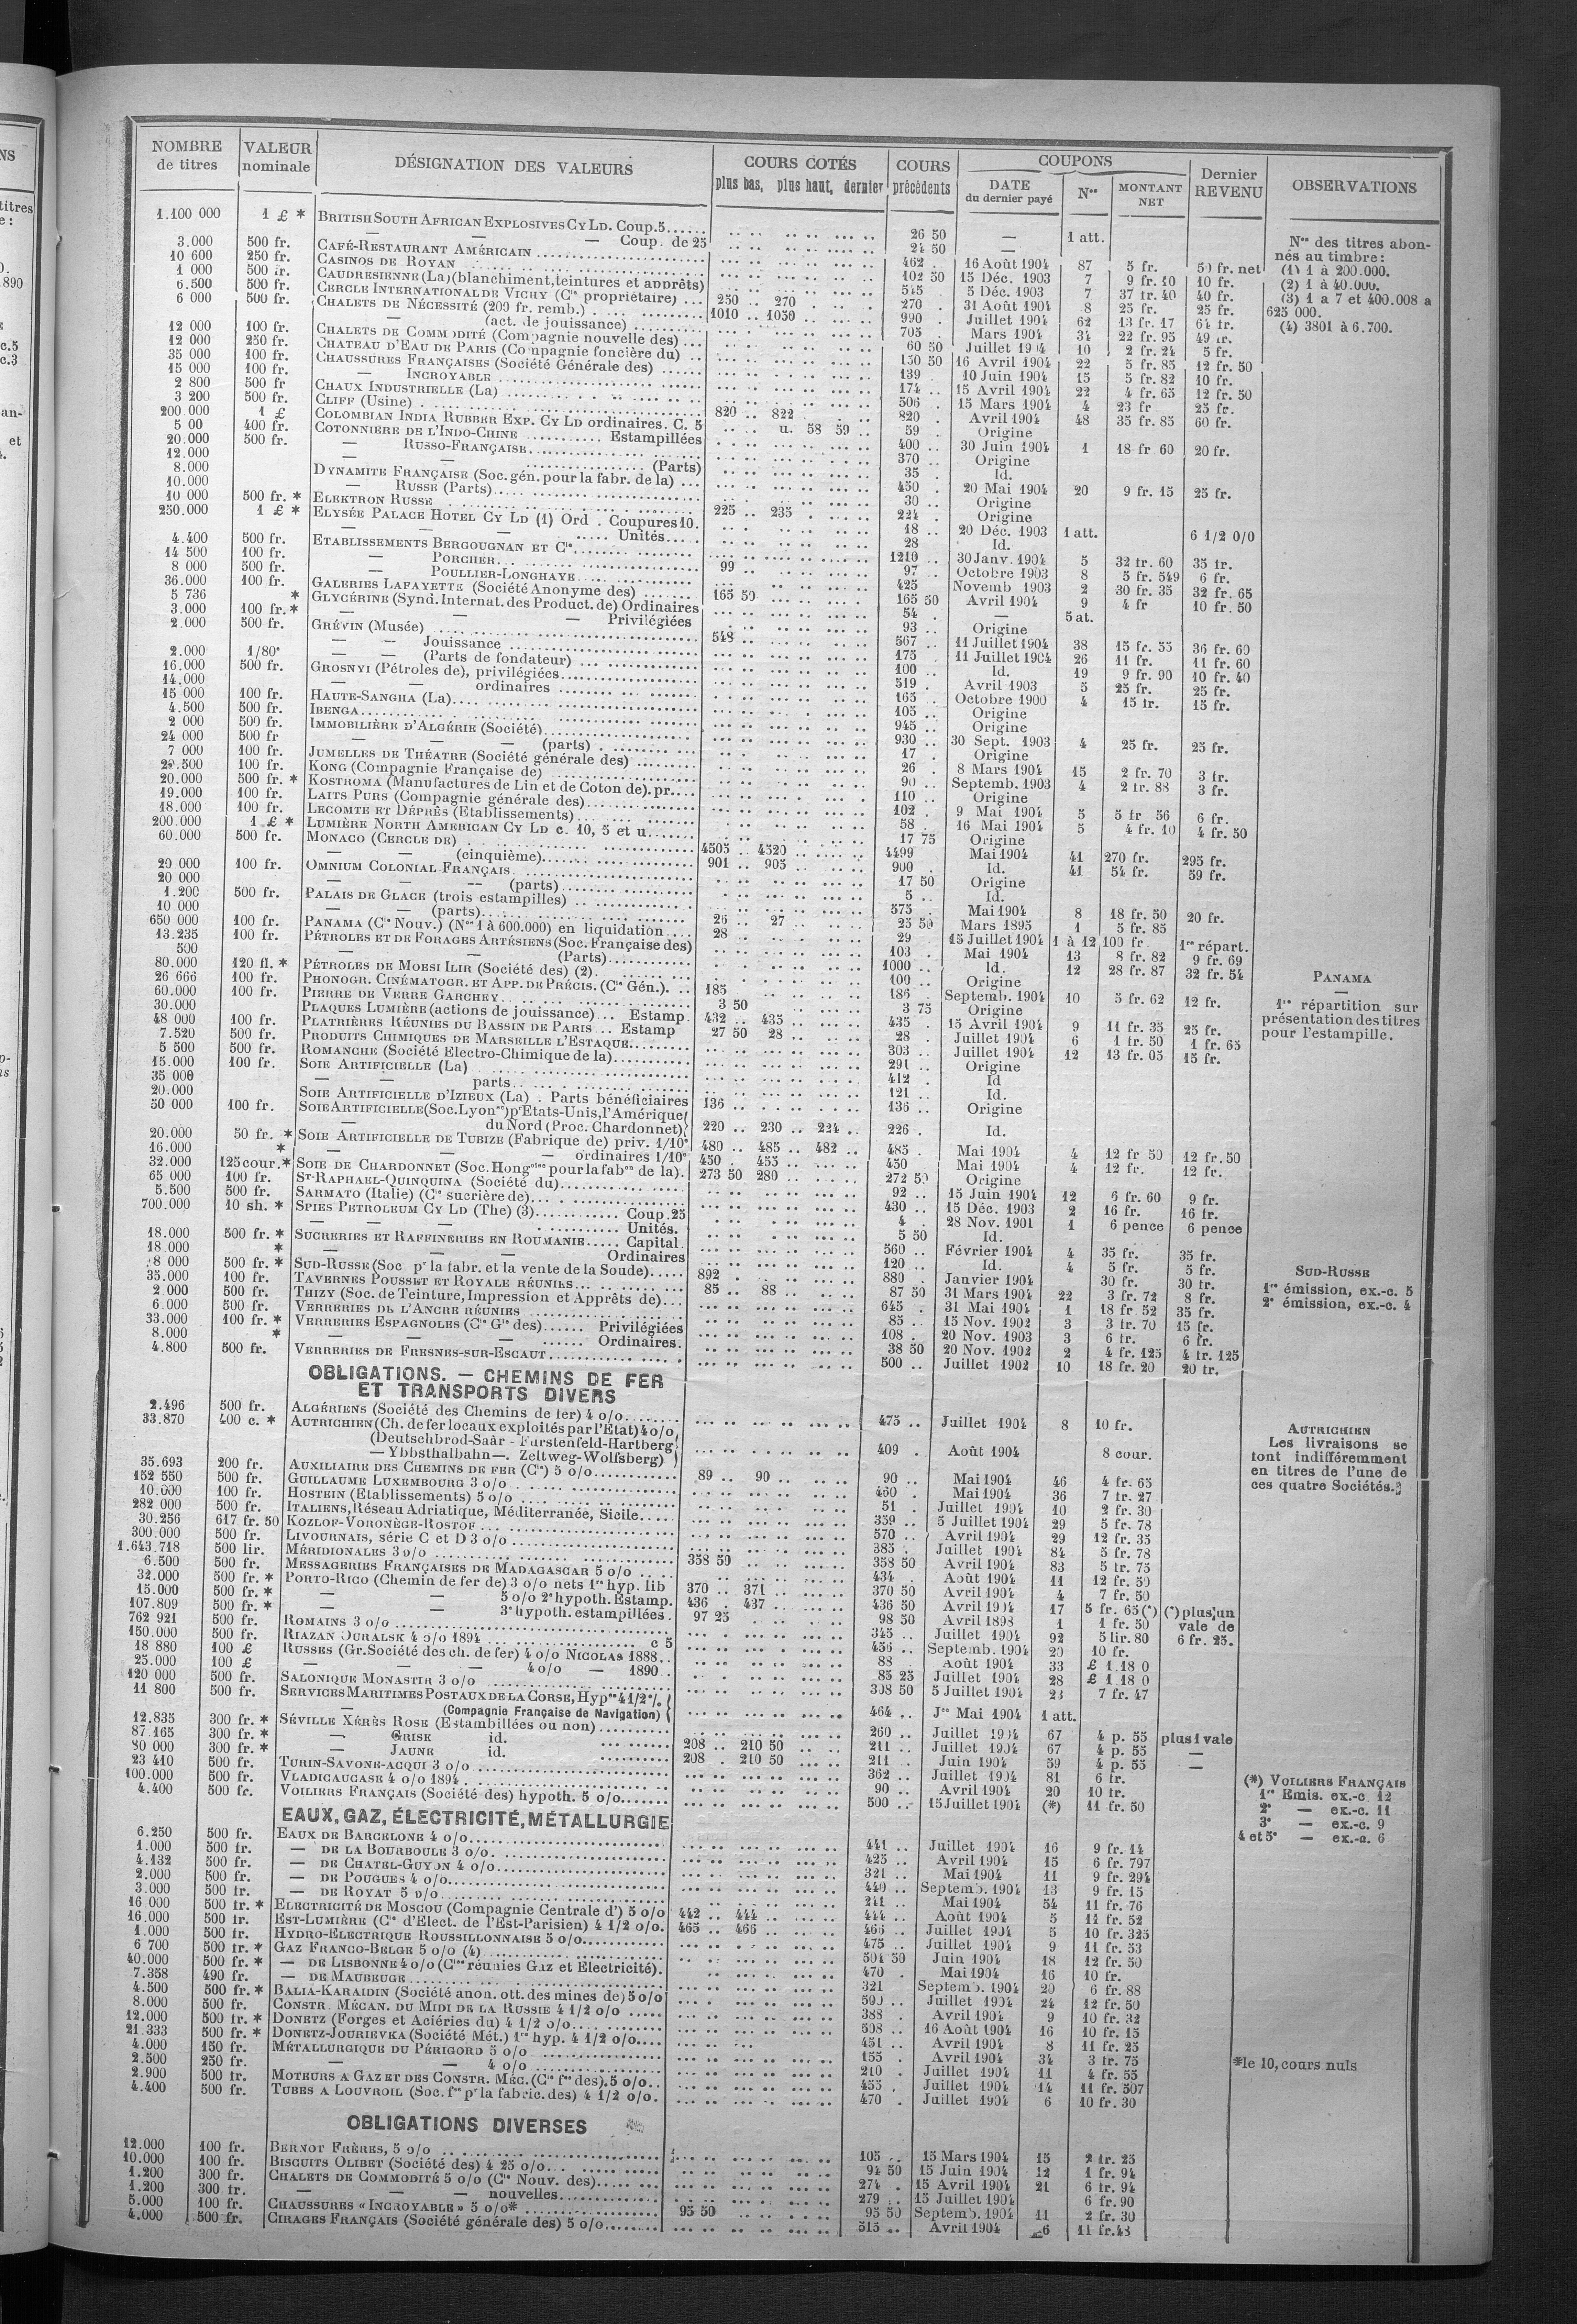 NOMBRE de titres | VALEUR nominale | DÉSIGNATION DES VALEURS | COURS COTÉS plus bas, plus haut, dernier | COURS précédents | COUPONS DATE du dernier payé | Nos | MONTANT NET | Dernier REVENU | OBSERVATIONS
1.100 000 1 £ * BRITISH SOUTH AFRICAN EXPLOSIVES CY LD. Coup. 5 26 50 — 1 att.
— — — Coup. de 25 24 50 —
3.000 500 fr. CAFÉ-RESTAURANT AMÉRICAIN 462 16 Août 1904 87 5 fr. 50 fr. net
10 600 250 fr. CASINOS DE ROYAN 102 50 15 Déc. 1903 7 9 fr. 10 fr.
1 000 500 fr. CAUDRESIENNE (La) (blanchiment, teintures et apprêts) 545 5 Déc. 1903 7 37 fr. 40 40 fr.
6.500 500 fr. CERCLE INTERNATIONAL DE VICHY (Cie propriétaire) 250 270 270 31 Août 1904 8 25 fr. 25 fr.
6 000 500 fr. CHALETS DE NÉCESSITÉ (209 fr. remb.) 1010 1050 990 Juillet 1904 62 13 fr. 17 64 fr.
— (act. de jouissance) 705 Mars 1904 34 22 fr. 95 49 fr.
12 000 100 fr. CHALETS DE COMMODITÉ (Compagnie nouvelle des) 60 50 Juillet 1904 10 2 fr. 24 5 fr.
12 000 250 fr. CHATEAU D'EAU DE PARIS (Compagnie foncière du) 150 50 16 Avril 1904 22 5 fr. 85 12 fr. 50
35 000 100 fr. CHAUSSURES FRANÇAISES (Société Générale des) 139 10 Juin 1904 15 5 fr. 82 10 fr.
15 000 100 fr. — INCROYABLE 174 15 Avril 1904 22 4 fr. 65 12 fr. 50
2 800 500 fr CHAUX INDUSTRIELLE (La) 506 15 Mars 1904 4 23 fr 25 fr.
3 200 500 fr. CLIFF (Usine) 820 822 820 Avril 1904 48 35 fr. 85 60 fr.
200 000 1 £ COLOMBIAN INDIA RUBBER EXP. CY LD ordinaires. C. 5 u. 58 59 59 Origine
5 00 400 fr. COTONNIERE DE L'INDO-CHINE Estampillées 400 30 Juin 1904 1 18 fr 60 20 fr.
20.000 500 fr. — RUSSO-FRANÇAISE 370 Origine
12.000 — (Parts) 35 Id.
8.000 DYNAMITE FRANÇAISE (Soc. gén. pour la fabr. de la) 450 20 Mai 1904 20 9 fr. 15 25 fr.
10.000 — RUSSE (Parts) 30 Origine
10 000 500 fr. * ELEKTRON RUSSE 225 235 224 Origine
250.000 1 £ * ELYSÉE PALACE HOTEL CY LD (1) Ord. Coupures 10. 18 20 Déc. 1903 1 att. 6 1/2 0/0
— — Unités 28 Id.
4.400 500 fr. ETABLISSEMENTS BERGOUGNAN ET Cie 1210 30 Janv. 1904 5 32 fr. 60 35 fr.
14 500 100 fr. — PORCHER 99 97 Octobre 1903 8 5 fr. 549 6 fr.
8 000 500 fr. — POULLIER-LONGHAYE 425 Novemb 1903 2 30 fr. 35 32 fr. 65
36.000 100 fr. GALERIES LAFAYETTE (Société Anonyme des) 165 50 165 50 Avril 1904 9 4 fr 10 fr. 50
5 736 * GLYCÉRINE (Synd. Internat. des Product. de) Ordinaires 54 — 5 at.
3.000 100 fr. * — — Privilégiées 93 Origine
2.000 500 fr. GRÉVIN (Musée) 548 567 11 Juillet 1904 38 15 fr. 55 36 fr. 60
— — Jouissance 175 11 Juillet 1904 26 11 fr. 11 fr. 60
2.000 1/80e — — (Parts de fondateur) 100 Id. 19 9 fr. 90 10 fr. 40
16.000 500 fr. GROSNYI (Pétroles de), privilégiées 519 Avril 1903 5 25 fr. 25 fr.
14.000 — — ordinaires 165 Octobre 1900 4 15 fr. 15 fr.
15 000 100 fr. HAUTE-SANGHA (La) 105 Origine
4.500 500 fr. IBENGA 945 Origine
2 000 500 fr. IMMOBILIÈRE D'ALGÉRIE (Société) 930 30 Sept. 1903 4 25 fr. 25 fr.
24 000 500 fr — — (parts) 17 Origine
7 000 100 fr. JUMELLES DE THÉATRE (Société générale des) 26 8 Mars 1904 15 2 fr. 70 3 fr.
100 fr. KONG (Compagnie Française de) 90 Septemb. 1903 4 2 fr. 88 3 fr.
20.000 500 fr. * KOSTROMA (Manufactures de Lin et de Coton de). pr. 110 Origine
19.000 100 fr. LAITS PURS (Compagnie générale des) 102 9 Mai 1904 5 5 fr 56 6 fr.
18.000 100 fr. LECOMTE ET DÉPRÈS (Etablissements) 58 16 Mai 1904 5 4 fr. 10 4 fr. 50
200.000 1 £ * LUMIÈRE NORTH AMERICAN CY LD c. 10, 5 et u. 17 75 Origine
60.000 500 fr. MONACO (CERCLE DE) 4505 4520 4499 Mai 1904 41 270 fr. 295 fr.
— — (cinquième) 901 905 900 Id. 41 54 fr. 59 fr.
20 000 100 fr. OMNIUM COLONIAL FRANÇAIS 17 50 Origine
20 000 — — (parts) 5 Id.
1.200 500 fr. PALAIS DE GLACE (trois estampilles) 575 Mai 1904 8 18 fr. 50 20 fr.
10 000 — — (parts) 26 27 25 50 Mars 1895 1 5 fr. 85
650 000 100 fr. PANAMA (Cie Nouv.) (Nos 1 à 600.000) en liquidation 28 29 15 Juillet 1904 1 à 12 100 fr 1re répart.
13.235 100 fr. PÉTROLES ET DE FORAGES ARTÉSIENS (Soc. Française des) 103 Mai 1904 13 8 fr. 82 9 fr. 69
500 — — (Parts) 1000 Id. 12 28 fr. 87 32 fr. 54
80.000 120 fl. * PÉTROLES DE MOESI ILIR (Société des) (2) 100 Origine
26 666 100 fr. PHONOGR. CINÉMATOGR. ET APP. DE PRÉCIS. (Cie Gén.). 185 186 Septemb. 1904 10 5 fr. 62 12 fr.
60.000 100 fr. PIERRE DE VERRE GARCHEY 3 50 3 75 Origine
30.000 PLAQUES LUMIÈRE (actions de jouissance) Estamp. 432 435 435 15 Avril 1904 9 11 fr. 35 25 fr.
48 000 100 fr. PLATRIÈRES RÉUNIES DU BASSIN DE PARIS Estamp 27 50 28 28 Juillet 1904 6 1 fr. 50 1 fr. 65
7.520 500 fr. PRODUITS CHIMIQUES DE MARSEILLE L'ESTAQUE 303 Juillet 1904 12 13 fr. 05 15 fr.
5 500 500 fr. ROMANCHE (Société Electro-Chimique de la) 291 Origine
15.000 100 fr. SOIE ARTIFICIELLE (La) 412 Id
35 000 — — parts 121 Id.
20.000 SOIE ARTIFICIELLE D'IZIEUX (La). Parts bénéficiaires 136 136 Origine
50 000 100 fr. SOIE ARTIFICIELLE (Soc. Lyonse) pr Etats-Unis, l'Amérique
— du Nord (Proc. Chardonnet) 220 230 224 226 Id.
20.000 50 fr. * SOIE ARTIFICIELLE DE TUBIZE (Fabrique de) priv. 1/10e 480 485 482 485 Mai 1904 4 12 fr 50 12 fr. 50
16.000 * — — ordinaires 1/10e 450 455 450 Mai 1904 4 12 fr. 12 fr.
32.000 125 cour. * SOIE DE CHARDONNET (Soc. Hongoise pour la fabon de la). 273 50 280 272 50 Origine
65 000 100 fr. ST-RAPHAEL-QUINQUINA (Société du) 92 15 Juin 1904 12 6 fr. 60 9 fr.
5.500 500 fr. SARMATO (Italie) (Cie sucrière de) 430 15 Déc. 1903 2 16 fr. 16 fr.
700.000 10 sh. * SPIES PETROLEUM CY LD (The) (3) Coup. 25 4 28 Nov. 1901 1 6 pence 6 pence
— — — Unités. 5 50 Id.
18.000 500 fr. * SUCRERIES ET RAFFINERIES EN ROUMANIE Capital. 560 Février 1904 4 35 fr. 35 fr.
18 000 * — — — Ordinaires 120 Id. 4 5 fr. 5 fr.
8 000 500 fr. * SUD-RUSSE (Soc pr la fabr. et la vente de la Soude) 892 880 Janvier 1904 30 fr. 30 fr.
35.000 100 fr. TAVERNES POUSSET ET ROYALE RÉUNIES 85 88 87 50 31 Mars 1904 22 3 fr. 72 8 fr.
2.000 500 fr. THIZY (Soc. de Teinture, Impression et Apprêts de) 645 31 Mai 1904 1 18 fr 52 35 fr.
6.000 500 fr. VERRERIES DE L'ANCRE RÉUNIES 85 15 Nov. 1902 3 3 fr. 70 15 fr.
33.000 100 fr. * VERRERIES ESPAGNOLES (Cie Gle des) Privilégiées 108 20 Nov. 1903 3 6 fr. 6 fr.
8.000 * — — — Ordinaires. 38 50 20 Nov. 1902 2 4 fr. 125 4 fr. 125
4.800 500 fr. VERRERIES DE FRESNES-SUR-ESCAUT 500 Juillet 1902 10 18 fr. 20 20 fr.
OBLIGATIONS. — CHEMINS DE FER
ET TRANSPORTS DIVERS
2.496 500 fr. ALGÉRIENS (Société des Chemins de fer) 4 o/o 475 Juillet 1904 8 10 fr.
33.870 400 c. * AUTRICHIEN (Ch. de fer locaux exploités par l'Etat) 4 o/o
(Deutschbrod-Saàr - Furstenfeld-Hartberg
— Ybbsthalbahn—. Zeltweg-Wolfsberg) 409 Août 1904 8 cour.
35.693 200 fr. AUXILIAIRE DES CHEMINS DE FER (Cie) 5 o/o 89 90 90 Mai 1904 46 4 fr. 65
152 550 500 fr. GUILLAUME LUXEMBOURG 3 o/o 460 Mai 1904 36 7 fr. 27
10.000 100 fr. HOSTEIN (Etablissements) 5 o/o 51 Juillet 1904 10 2 fr. 30
282 000 500 fr. ITALIENS, Réseau Adriatique, Méditerranée, Sicile 359 5 Juillet 1904 29 5 fr. 78
30.256 617 fr. 50 KOZLOF-VORONÈGE-ROSTOF 570 Avril 1904 29 12 fr. 35
300.000 500 fr. LIVOURNAIS, série C et D 3 o/o 385 Juillet 1904 84 5 fr. 78
1.643.718 500 lir. MÉRIDIONALES 3 o/o 358 50 358 50 Avril 1904 83 5 fr. 75
6.500 500 fr. MESSAGERIES FRANÇAISES DE MADAGASCAR 5 o/o 434 Août 1904 11 12 fr. 50
32.000 500 fr. * PORTO-RICO (Chemin de fer de) 3 o/o nets 1re hyp. lib 370 371 370 50 Avril 1904 4 7 fr. 50
15.000 500 fr. * — — 5 o/o 2e hypoth. Estamp. 436 437 436 50 Avril 1904 17 5 fr. 65 (*) (*) plus un
107.809 500 fr. * — — 3e hypoth. estampillées 97 25 98 50 Avril 1898 1 1 fr. 50 vale de
762 921 500 fr. ROMAINS 3 o/o 345 Juillet 1904 92 5 lir. 80 6 fr. 25.
150.000 500 fr. RIAZAN OURALSK 4 o/o 1894 c 5 456 Septemb. 1904 20 10 fr.
18 880 100 £ RUSSES (Gr. Société des ch. de fer) 4 o/o NICOLAS 1888 88 Août 1904 33 £ 1.18 0
25.000 100 £ — — — 4 o/o — 1890 85 25 Juillet 1904 28 £ 1 18 0
120 000 500 fr. SALONIQUE MONASTIR 3 o/o 308 50 5 Juillet 1904 23 7 fr. 47
11 800 500 fr. SERVICES MARITIMES POSTAUX DE LA CORSE, Hypre 4 1/2 %
— (Compagnie Française de Navigation) 464 Jce Mai 1904 1 att.
12.835 300 fr. * SÉVILLE XÉRÈS ROSE (Estampillées ou non) 260 Juillet 1904 67 4 p. 55 plus 1 vale
87.165 300 fr. * — GRISE id. 208 210 50 211 Juillet 1904 67 4 p. 55 —
80 000 300 fr. * — JAUNE id. 208 210 50 211 Juin 1904 59 4 p. 55 —
23 410 500 fr. TURIN-SAVONE-ACQUI 3 o/o 362 Juillet 1904 81 6 fr.
100.000 500 fr. VLADICAUCASE 4 o/o 1894 90 Avril 1904 20 10 fr.
4.400 500 fr. VOILIERS FRANÇAIS (Société des) hypoth. 5 o/o 500 15 Juillet 1904 (*) 11 fr. 50
EAUX, GAZ, ÉLECTRICITÉ, MÉTALLURGIE
6.250 500 fr. EAUX DE BARCELONE 4 o/o 441 Juillet 1904 16 9 fr. 14
1.000 500 fr. — DE LA BOURBOULE 3 o/o 425 Avril 1904 15 6 fr. 797
4.132 500 fr. — DE CHATEL-GUYON 4 o/o 321 Mai 1904 11 9 fr. 294
2.000 500 fr. — DE POUGUES 4 o/o 440 Septemb. 1904 13 9 fr. 15
3.000 500 fr. — DE ROYAT 5 o/o 241 Mai 1904 54 11 fr. 76
16 000 500 fr. * ELECTRICITÉ DE MOSCOU (Compagnie Centrale d') 5 o/o 442 444 444 Août 1904 5 11 fr. 52
16.000 500 fr. EST-LUMIÈRE (Cie d'Elect. de l'Est-Parisien) 4 1/2 o/o. 465 466 466 Juillet 1904 5 10 fr. 325
1.000 500 fr. HYDRO-ÉLECTRIQUE ROUSSILLONNAISE 5 o/o 475 Juillet 1904 9 11 fr. 53
6 700 500 fr. * GAZ FRANCO-BELGE 5 o/o (4) 501 50 Juin 1904 18 12 fr. 50
40.000 500 fr. * — DE LISBONNE 4 o/o (Cies réunies Gaz et Electricité). 470 Mai 1904 16 10 fr.
7.358 490 fr. — DE MAUBEUGE 321 Septemb. 1904 20 6 fr. 88
4.500 500 fr. * BALIA-KARAIDIN (Société anon. ott. des mines de) 5 o/o 500 Juillet 1904 24 12 fr. 50
8.000 500 fr. CONSTR. MÉCAN. DU MIDI DE LA RUSSIE 4 1/2 o/o 388 Avril 1904 9 10 fr. 32
12.000 500 fr. * DONETZ (Forges et Aciéries du) 4 1/2 o/o 508 16 Août 1904 16 10 fr. 15
21.333 500 fr. * DONETZ-JOURIEVKA (Société Mét.) 1re hyp. 4 1/2 o/o 451 Avril 1904 8 11 fr. 25
4.000 150 fr. MÉTALLURGIQUE DU PÉRIGORD 5 o/o 155 Avril 1904 34 3 fr. 75
2.500 250 fr. — — 4 o/o 210 Juillet 1904 11 4 fr. 55
2.900 500 fr. MOTEURS A GAZ ET DES CONSTR. MÉC. (Cie fse des). 5 o/o 455 Juillet 1904 14 11 fr. 507
4.400 500 fr. TUBES A LOUVROIL (Soc. fse pr la fabric. des) 4 1/2 o/o. 470 Juillet 1904 6 10 fr. 30
OBLIGATIONS DIVERSES
12.000 100 fr. BERNOT FRÈRES, 5 o/o 105 15 Mars 1904 15 2 fr. 25
10.000 100 fr. BISCUITS OLIBET (Société des) 4 25 o/o 94 50 15 Juin 1904 12 1 fr. 94
1.200 300 fr. CHALETS DE COMMODITÉ 5 o/o (Cie Nouv. des) 274 15 Avril 1904 21 6 fr. 94
1.200 300 fr. — — — nouvelles 279 15 Juillet 1904 6 fr. 90
5.000 100 fr. CHAUSSURES « INCROYABLE » 5 o/o* 95 50 95 50 Septemb. 1904 11 2 fr. 30
4.000 500 fr. CIRAGES FRANÇAIS (Société générale des) 5 o/o 515 Avril 1904 6 11 fr. 48
Nos des titres abonnés au timbre:
(1) 1 à 200.000.
(2) 1 à 40.000.
(3) 1 a 7 et 400.008 a
625 000.
(4) 3801 à 6.700.
PANAMA
—
1re répartition sur
présentation des titres
pour l'estampille.
SUD-RUSSE
1re émission, ex.-c. 5
2e émission, ex.-c. 4
AUTRICHIEN
Les livraisons se
font indifféremment
en titres de l'une de
ces quatre Sociétés.
(*) VOILIERS FRANÇAIS
1re Emis. ex.-c. 12
2e — ex.-c. 11
3e — ex.-c. 9
4 et 5e — ex.-c. 6
*le 10, cours nuls